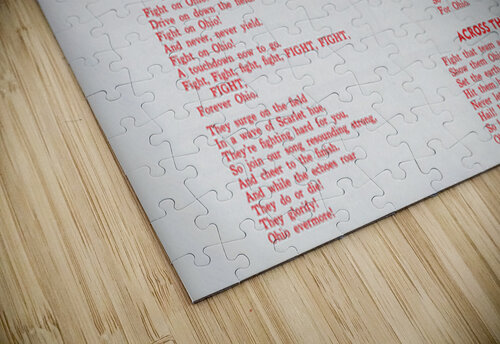 Fight on Ohio!
Drive on down the field!
Fight on Ohio!
And never, never yield.
Fight on Ohio!
A touchdown now to go.
Fight, Fight, fight, fight, FIGHT, FIGHT,
FIGHT,
Forever Ohio.
They surge on the field
In a wave of Scarlet hue,
They're fighting hard for you,
So join our song resounding strong,
And cheer to the finish
And while the echoes roar
They do or die!
They glorify!
Ohio evermore!
For Ohio.
ACROSS
Fight that team
Show them
Set the
Hit them
Never
Hail